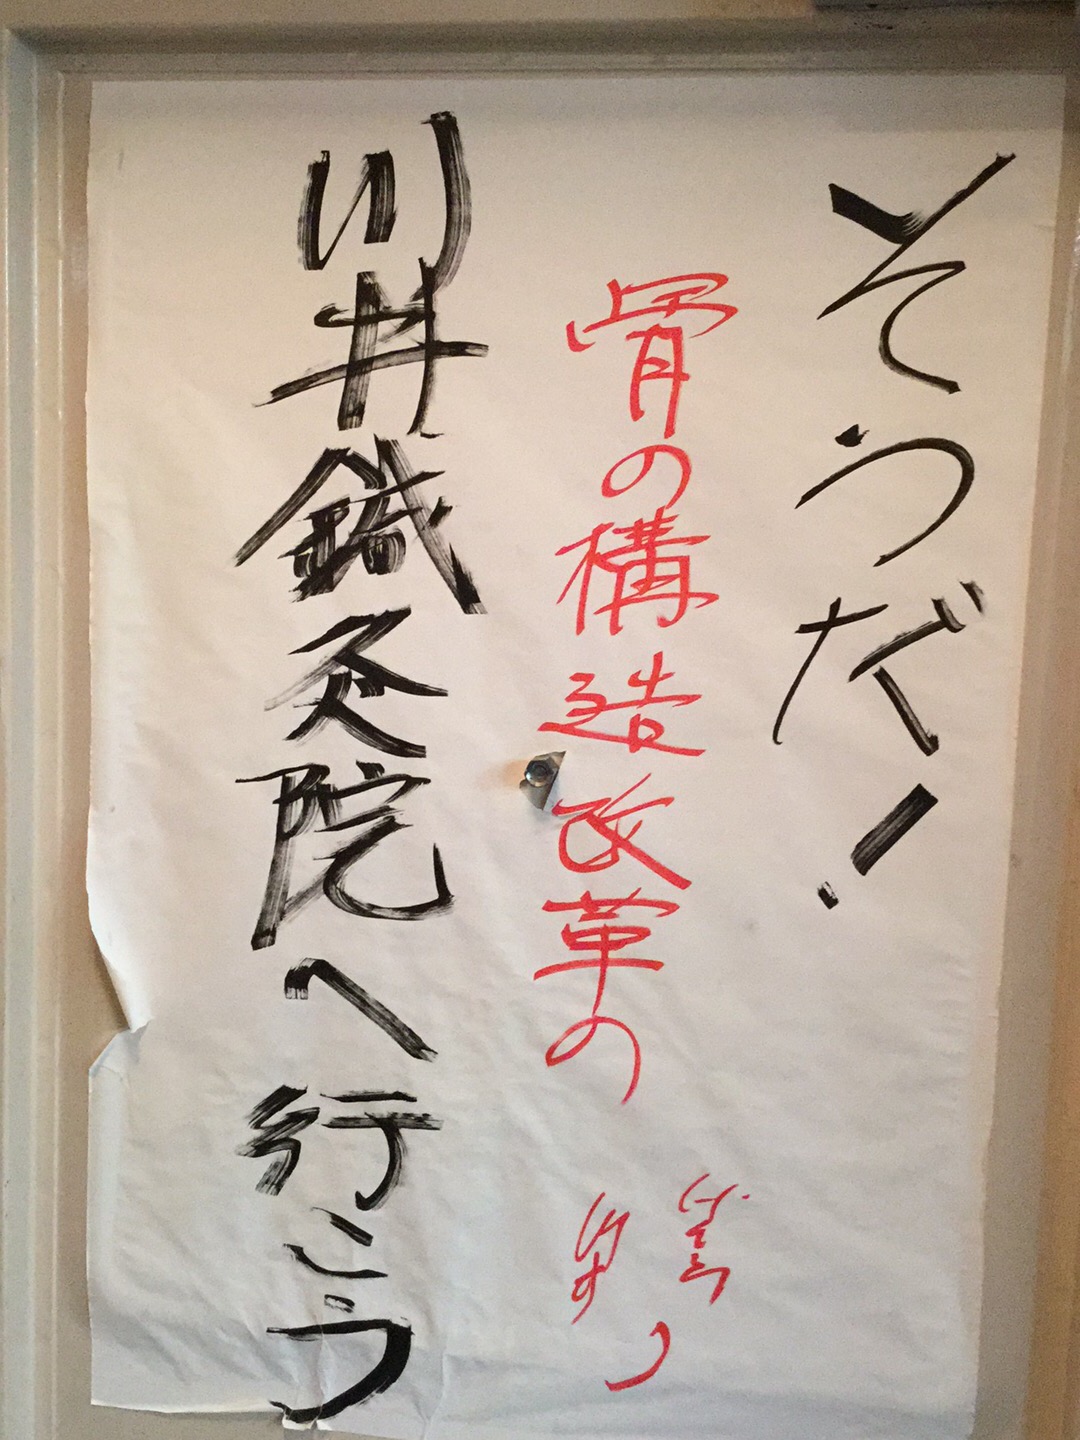 そうだ！
骨の構造改革の
川井鍼灸院へ行こう